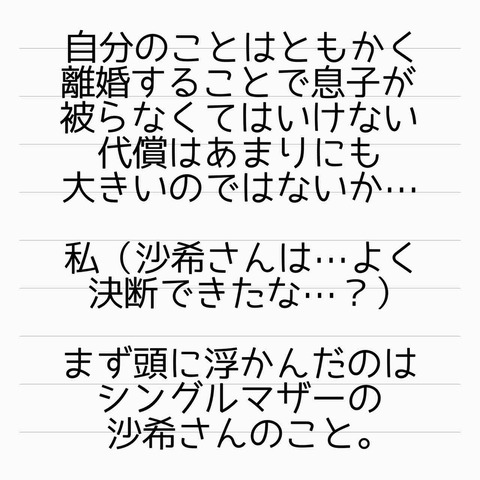 自分のことはともかく
離婚することで息子が
被らなくてはいけない
代償はあまりにも
大きいのではないか…
私（沙希さんは…よく
決断できたな…？）
まず頭に浮かんだのは
シングルマザーの
沙希さんのこと。